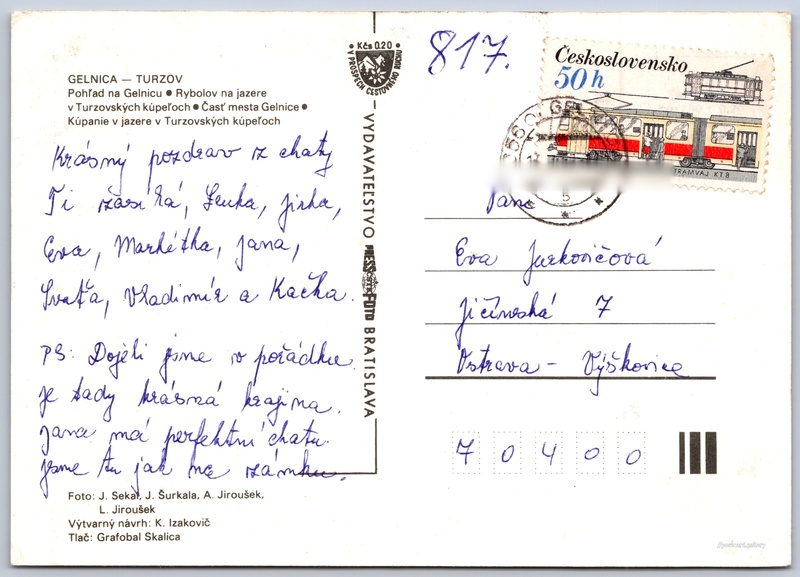 GELNICA — TURZOV
Pohľad na Gelnicu ● Rybolov na jazere
v Turzovských kúpeľoch ● Časť mesta Gelnice ●
Kúpanie v jazere v Turzovských kúpeľoch
Krásný pozdrav z chaty
Ti zasílá, Lenka, Jirka,
Eva, Markétka, Jana,
Svaťa, Vladimír a Kačka.
PS: Dojeli jsme v pořádku.
Je tady krásná krajina.
Jana má perfektní chatu.
Jsme tu jak na zámku.
Foto: J. Sekal, J. Šurkala, A. Jiroušek,
L. Jiroušek
Výtvarný návrh: K. Izakovič
Tlač: Grafobal Skalica
Kčs 0.20
V PROSPECH CESTOVNÉHO RUCHU
VYDAVATEĽSTVO PRESSFOTO BRATISLAVA
817.
Československo
50 h
TRAMVAJ KT 8
056 01 GEL
Paní
Eva Jurkovičová
Jičínská 7
Ostrava - Výškovice
7 0 4 0 0